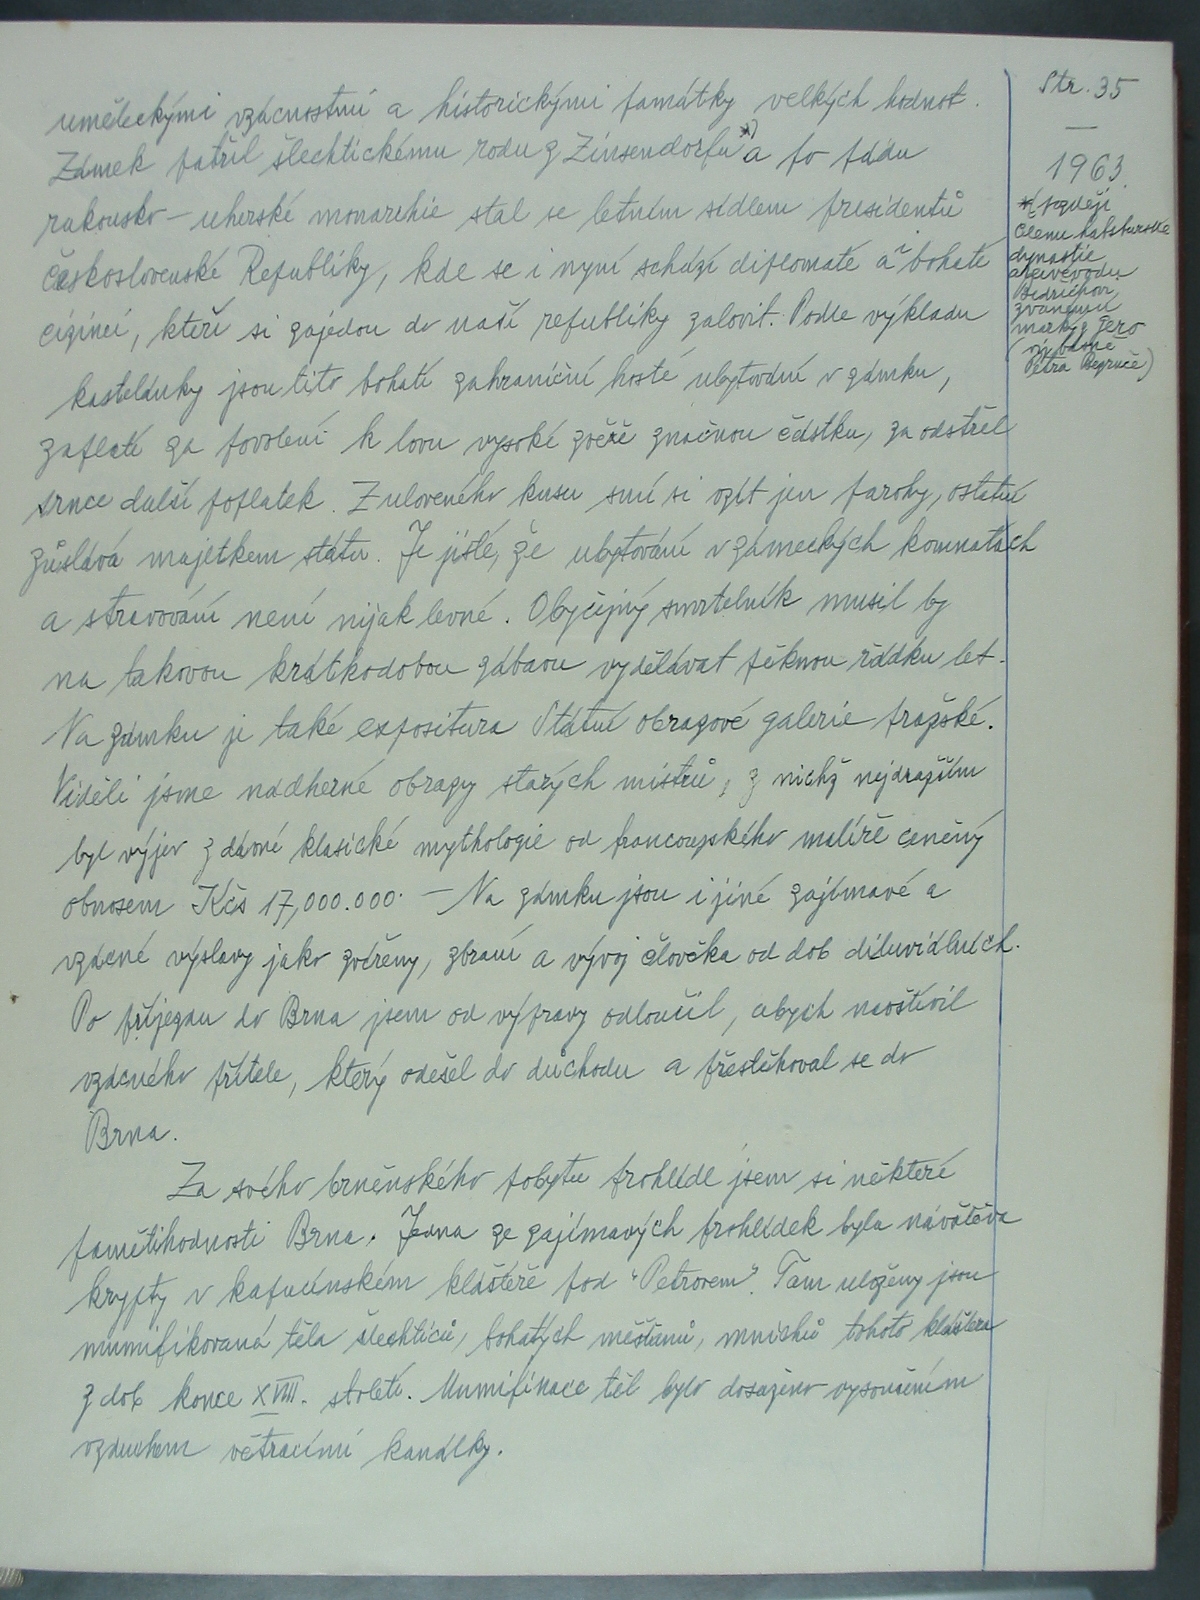 Str. 35
1963.
uměleckými vzácnostmi a historickými památky velkých hodnot.
Zámek patřil šlechtickému rodu z Zinsendorfu *) a po pádu
rakousko-uherské monarchie stal se letním sídlem presidentů
Československé Republiky, kde se i nyní schází diplomaté a bohatí
cizinci, kteří si zajedou do naší republiky zalovit. Podle výkladu
kastelánky jsou tito bohatí zahraniční hosté ubytováni v zámku,
zaplatí za povolení k lovu vysoké zvěře značnou částku, za odstřel
srnce další poplatek. Z uloveného kusu smí si vzít jen parohy, ostatní
zůstává majetkem státu. Je jisté, že ubytování v zámeckých komnatách
a stravování není nijak levné. Obyčejný smrtelník musil by
na takovou krátkodobou zábavu vydělávat pěknou řádku let.
Na zámku je také expositura Státní obrazové galerie pražské.
Viděli jsme nádherné obrazy starých mistrů, z nichž nejdražším
byl výjev z dávné klasické mythologie od francouzského malíře ceněný
obnosem Kčs 17,000.000.- Na zámku jsou i jiné zajímavé a
vzácné výstavy jako zvěřeny, zbraní a vývoj člověka od dob diluviálních.
Po příjezdu do Brna jsem od výpravy odloučil, abych navštívil
vzácného přítele, který odešel do důchodu a přestěhoval se do
Brna.
Za svého brněnského pobytu prohlédl jsem si některé
pamětihodnosti Brna. Jedna ze zajímavých prohlídek byla návštěva
krypty v kapucínském klášteře pod "Petrovem". Tam uloženy jsou
mumifikovaná těla šlechticů, bohatých měšťanů, mnichů tohoto kláštera
z dob konce XVIII. století. Mumifikace těl bylo dosaženo vysoušením
vzduchem větracími kanálky.
*) později
členu habsburské
dynastie
arcivévodu
Bedřichovi
zvanému
markýz Gero
(viz básně
Petra Bezruče)